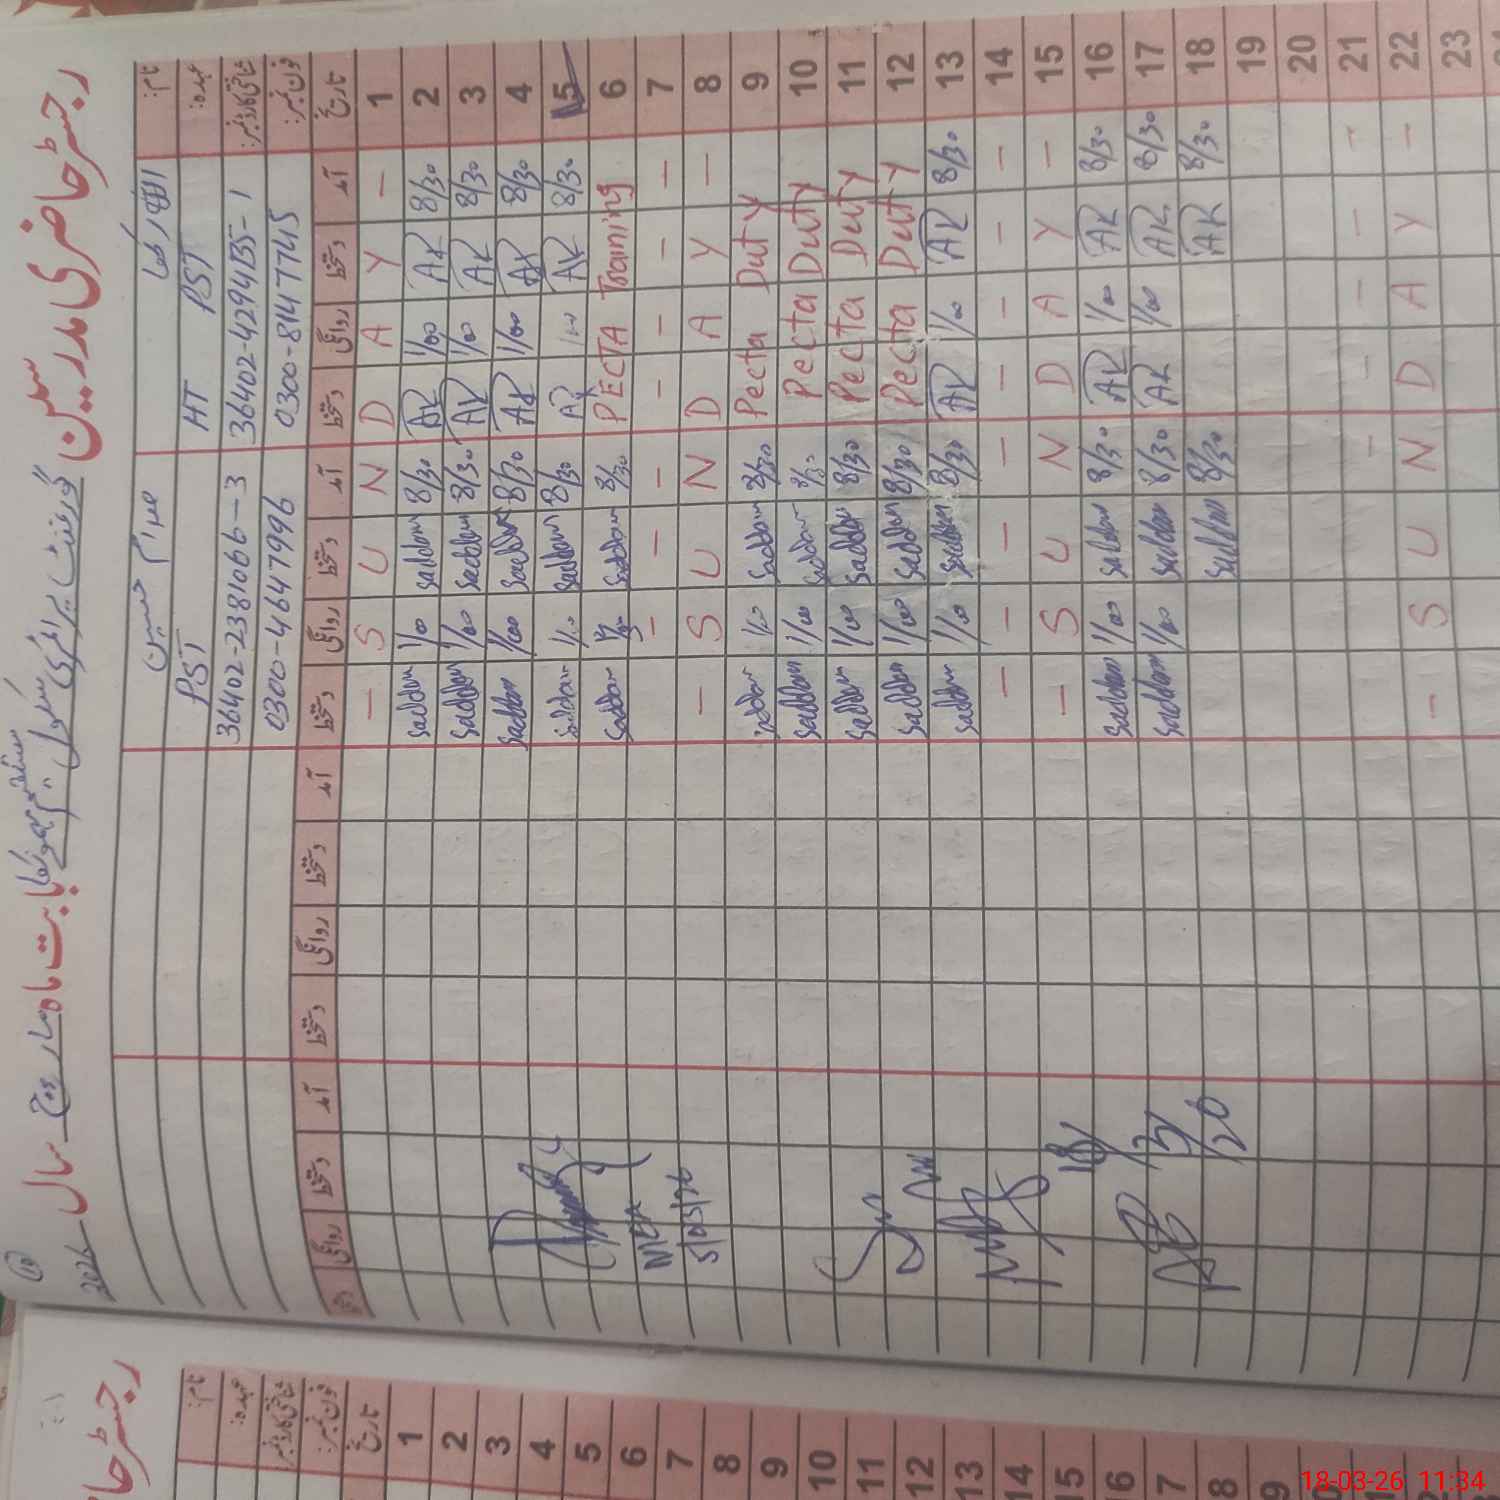 رجسٹر حاضری مدرسین گورنمنٹ پرائمری سکول بابت ماہ مارچ سال 2026
نام:
صدام حسین
عہدہ: HT PST
PST
شناختی کارڈ نمبر: 36402-4294135-1
36402-2381066-3
فون نمبر: 0300-8147745
0300-4647996
تاریخ آمد دستخط روانگی دستخط آمد دستخط روانگی دستخط آمد دستخط روانگی دستخط آمد دستخط روانگی
1 - Y A D N U S -
2 8/30 AK 1/00 AK 8/30 Saddam 1/00 Saddam
3 8/30 AK 1/00 AK 8/30 Saddam 1/00 Saddam
4 8/30 AK 1/00 AK 8/30 Saddam 1/00 Saddam
5 8/30 AK 1/00 AK 8/30 Saddam 1/00 Saddam
6 PECTA Training 8/30 Saddam Saddam
7 - - - - - - -
8 - Y A D N U S -
9 Pecta Duty 8/30 Saddam 1/00 Saddam
10 Pecta Duty 8/30 Saddam 1/00 Saddam
11 Pecta Duty 8/30 Saddam 1/00 Saddam
12 Pecta Duty 8/30 Saddam 1/00 Saddam
13 8/30 AK 1/00 AK 8/30 Saddam 1/00 Saddam
14 - - - - - - -
15 - Y A D N U S -
16 8/30 AK 1/00 AK 8/30 Saddam 1/00 Saddam
17 8/30 AK 1/00 AK 8/30 Saddam 1/00 Saddam
18 8/30 AK 8/30 Saddam
19
20
21 - - - -
22 - Y A D N U S -
23
5/03/26
رجسٹر حا
نام:
عہدہ:
شناختی کارڈ نمبر:
فون نمبر:
تاریخ
1
2
3
4
5
6
7
8
9
10
11
12
13
14
15
16
7
8
9
18-03-26 11:34